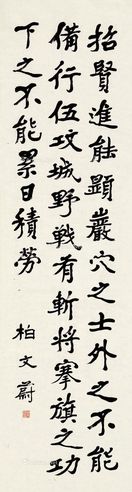 招賢進能顯巖穴之士外之不能
備行伍攻城野戰有斬將搴旗之功
下之不能累日積勞
柏文蔚